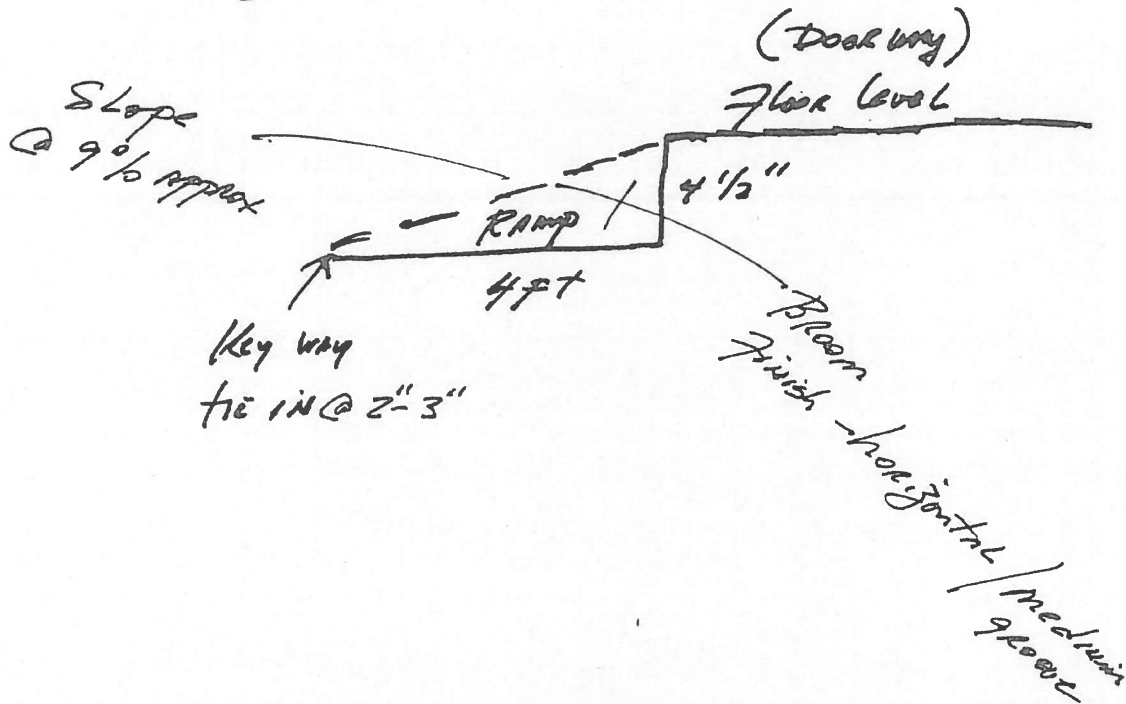 (DOORWAY)
FLOOR LEVEL
SLOPE
@ 9% APPROX
4 1/2"
RAMP
4 FT
KEY WAY
TIE IN @ 2"-3"
BROOM
FINISH - HORIZONTAL / MEDIUM
GROOVE